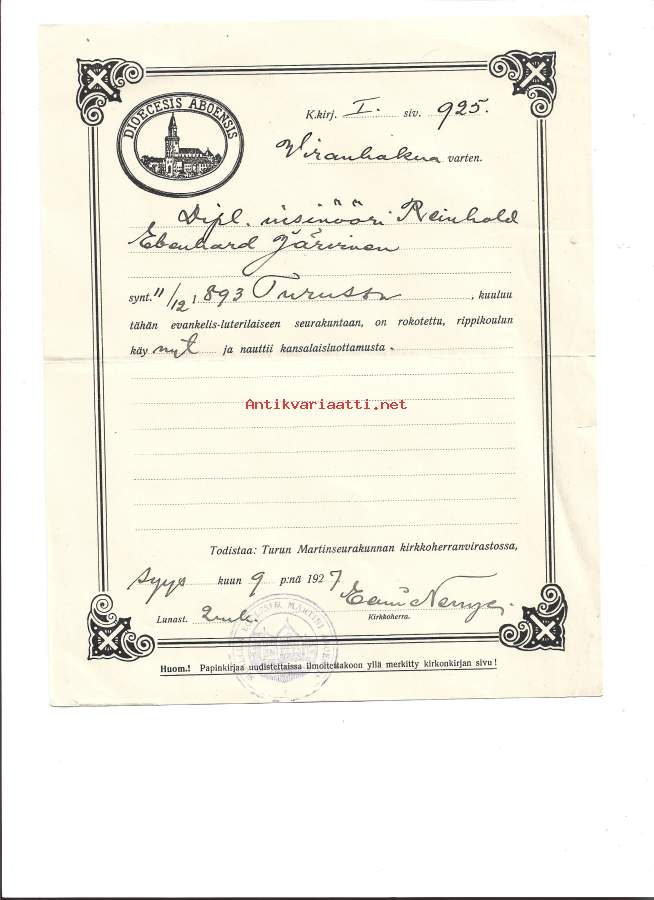 DIOECESIS ABOENSIS
K.kirj. I. siv. 925.
Viranhakua varten.
Dipl. insinööri Reinhold
Eberhard Järvinen
synt. 11/12 1893 Turussa, kuuluu
tähän evankelis-luterilaiseen seurakuntaan, on rokotettu, rippikoulun
käy nyt ja nauttii kansalaisluottamusta.
Antikvariaatti.net
Todistaa: Turun Martinseurakunnan kirkkoherranvirastossa,
Syys kuun 9 p:nä 1927
Lunast. 2 mk.
Kirkkoherra.
Huom.! Papinkirjaa uudistettaissa ilmoitettakoon yllä merkitty kirkonkirjan sivu!